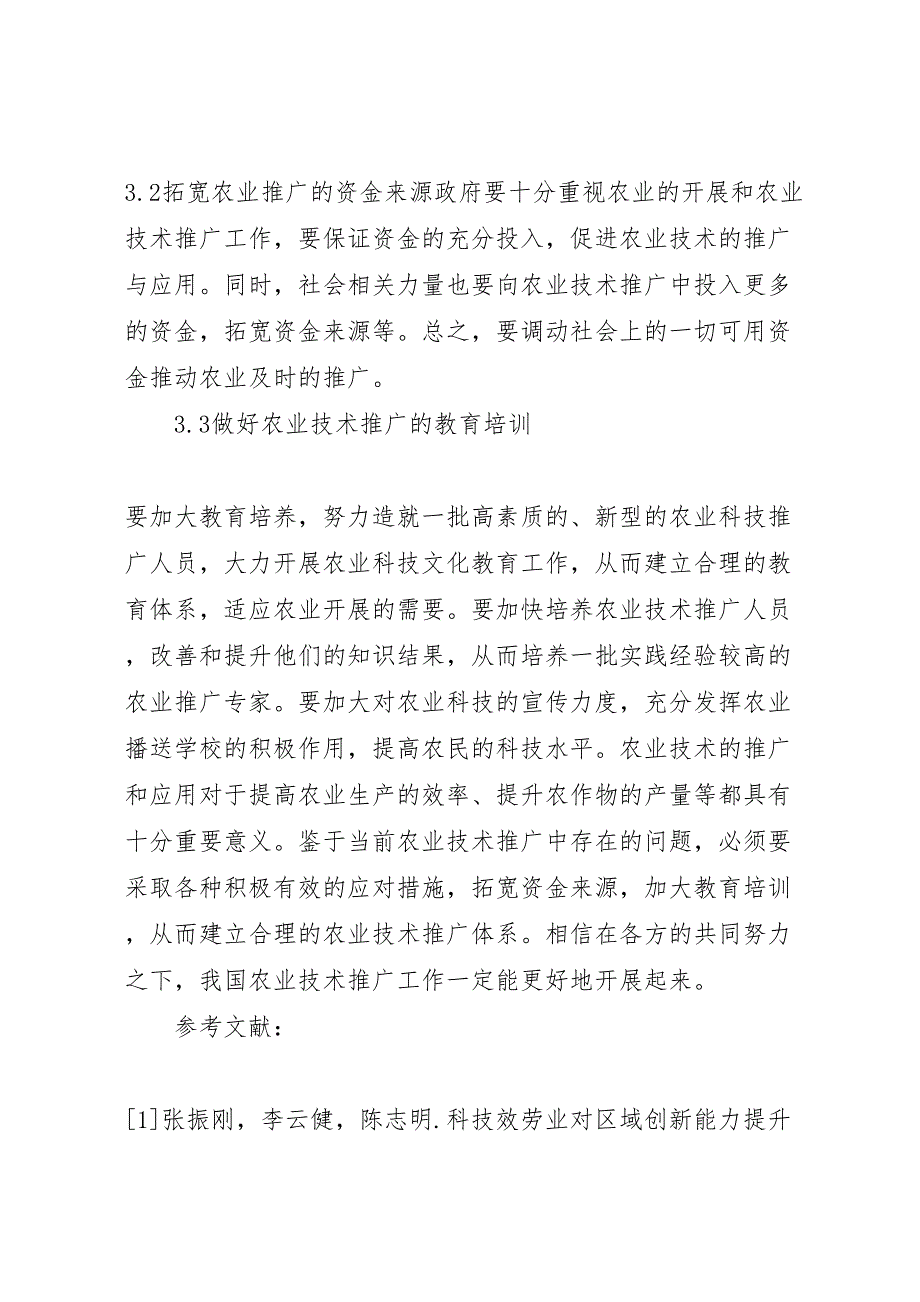 3.2拓宽农业推广的资金来源政府要十分重视农业的开展和农业
技术推广工作，要保证资金的充分投入，促进农业技术的推广
与应用。同时，社会相关力量也要向农业技术推广中投入更多
的资金，拓宽资金来源等。总之，要调动社会上的一切可用资
金推动农业及时的推广。
3.3做好农业技术推广的教育培训
要加大教育培养，努力造就一批高素质的、新型的农业科技推
广人员，大力开展农业科技文化教育工作，从而建立合理的教
育体系，适应农业开展的需要。要加快培养农业技术推广人员
，改善和提升他们的知识结果，从而培养一批实践经验较高的
农业推广专家。要加大对农业科技的宣传力度，充分发挥农业
播送学校的积极作用，提高农民的科技水平。农业技术的推广
和应用对于提高农业生产的效率、提升农作物的产量等都具有
十分重要意义。鉴于当前农业技术推广中存在的问题，必须要
采取各种积极有效的应对措施，拓宽资金来源，加大教育培训
，从而建立合理的农业技术推广体系。相信在各方的共同努力
之下，我国农业技术推广工作一定能更好地开展起来。
参考文献：
[1]张振刚，李云健，陈志明.科技效劳业对区域创新能力提升